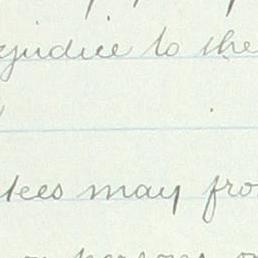 ejudice to the
tees may fro
or persons or